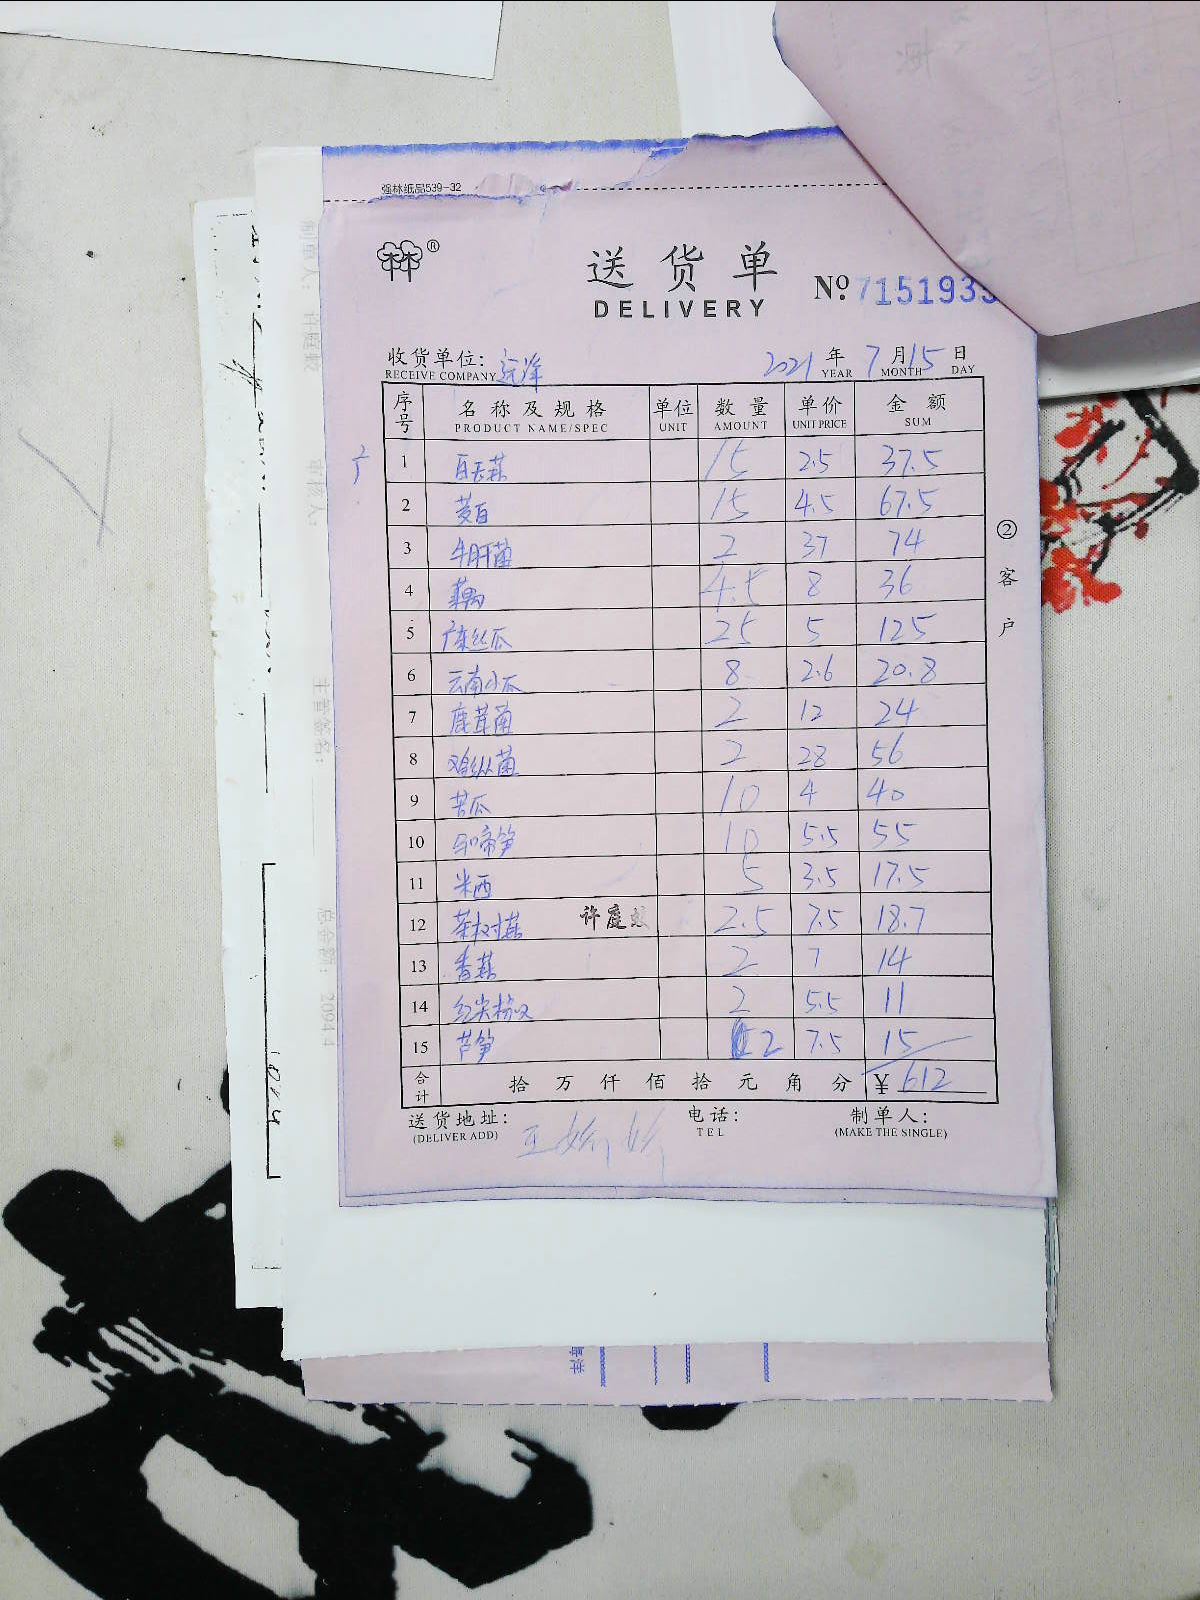 强林纸品539-32
®
送货单
DELIVERY
№ 715193
收货单位: 远洋 2021年7月15日
RECEIVE COMPANY YEAR MONTH DAY
序号 名称及规格 单位 数量 单价 金额
PRODUCT NAME/SPEC UNIT AMOUNT UNIT PRICE SUM
1 白玉菇 15 2.5 37.5
2 茭白 15 4.5 67.5
3 牛肝菌 2 37 74
4 藕 4.5 8 36
5 广东丝瓜 25 5 125
6 云南小瓜 8 2.6 20.8
7 鹿茸菌 2 12 24
8 鸡纵菌 2 28 56
9 苦瓜 10 4 40
10 马啼笋 10 5.5 55
11 米西 5 3.5 17.5
12 茶树菇 许庭 2.5 7.5 18.7
13 香菇 2 7 14
14 红尖椒 2 5.5 11
15 芦笋 2 7.5 15
合计 拾万仟佰拾元角分 ¥ 612
送货地址: 电话: 制单人:
(DELIVER ADD) TEL (MAKE THE SINGLE)
王娇娇
②客户
总金额: 2094.4